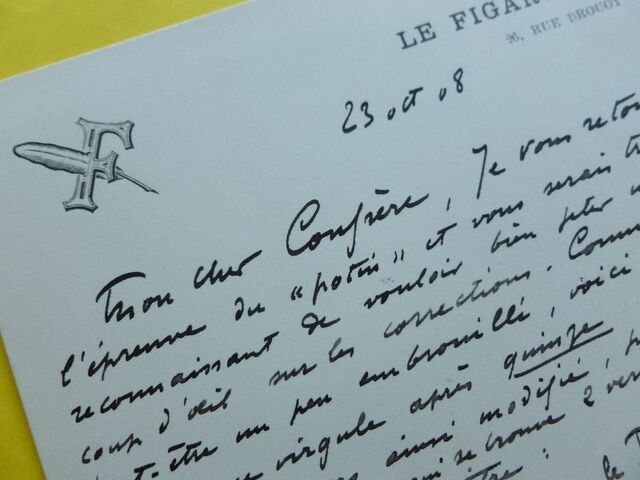 LE FIGAR
26, RUE DROUOT
23 oct 08
F
Mon cher Confrère, Je vous retou
l'épreuve du "potin" et vous serais tr
reconnaissant de vouloir bien jeter u
coup d'œil sur les corrections. Comm
t-être un peu embrouillé, voici
virgule après quinze
ainsi modifié, p
se trouve 2 ver